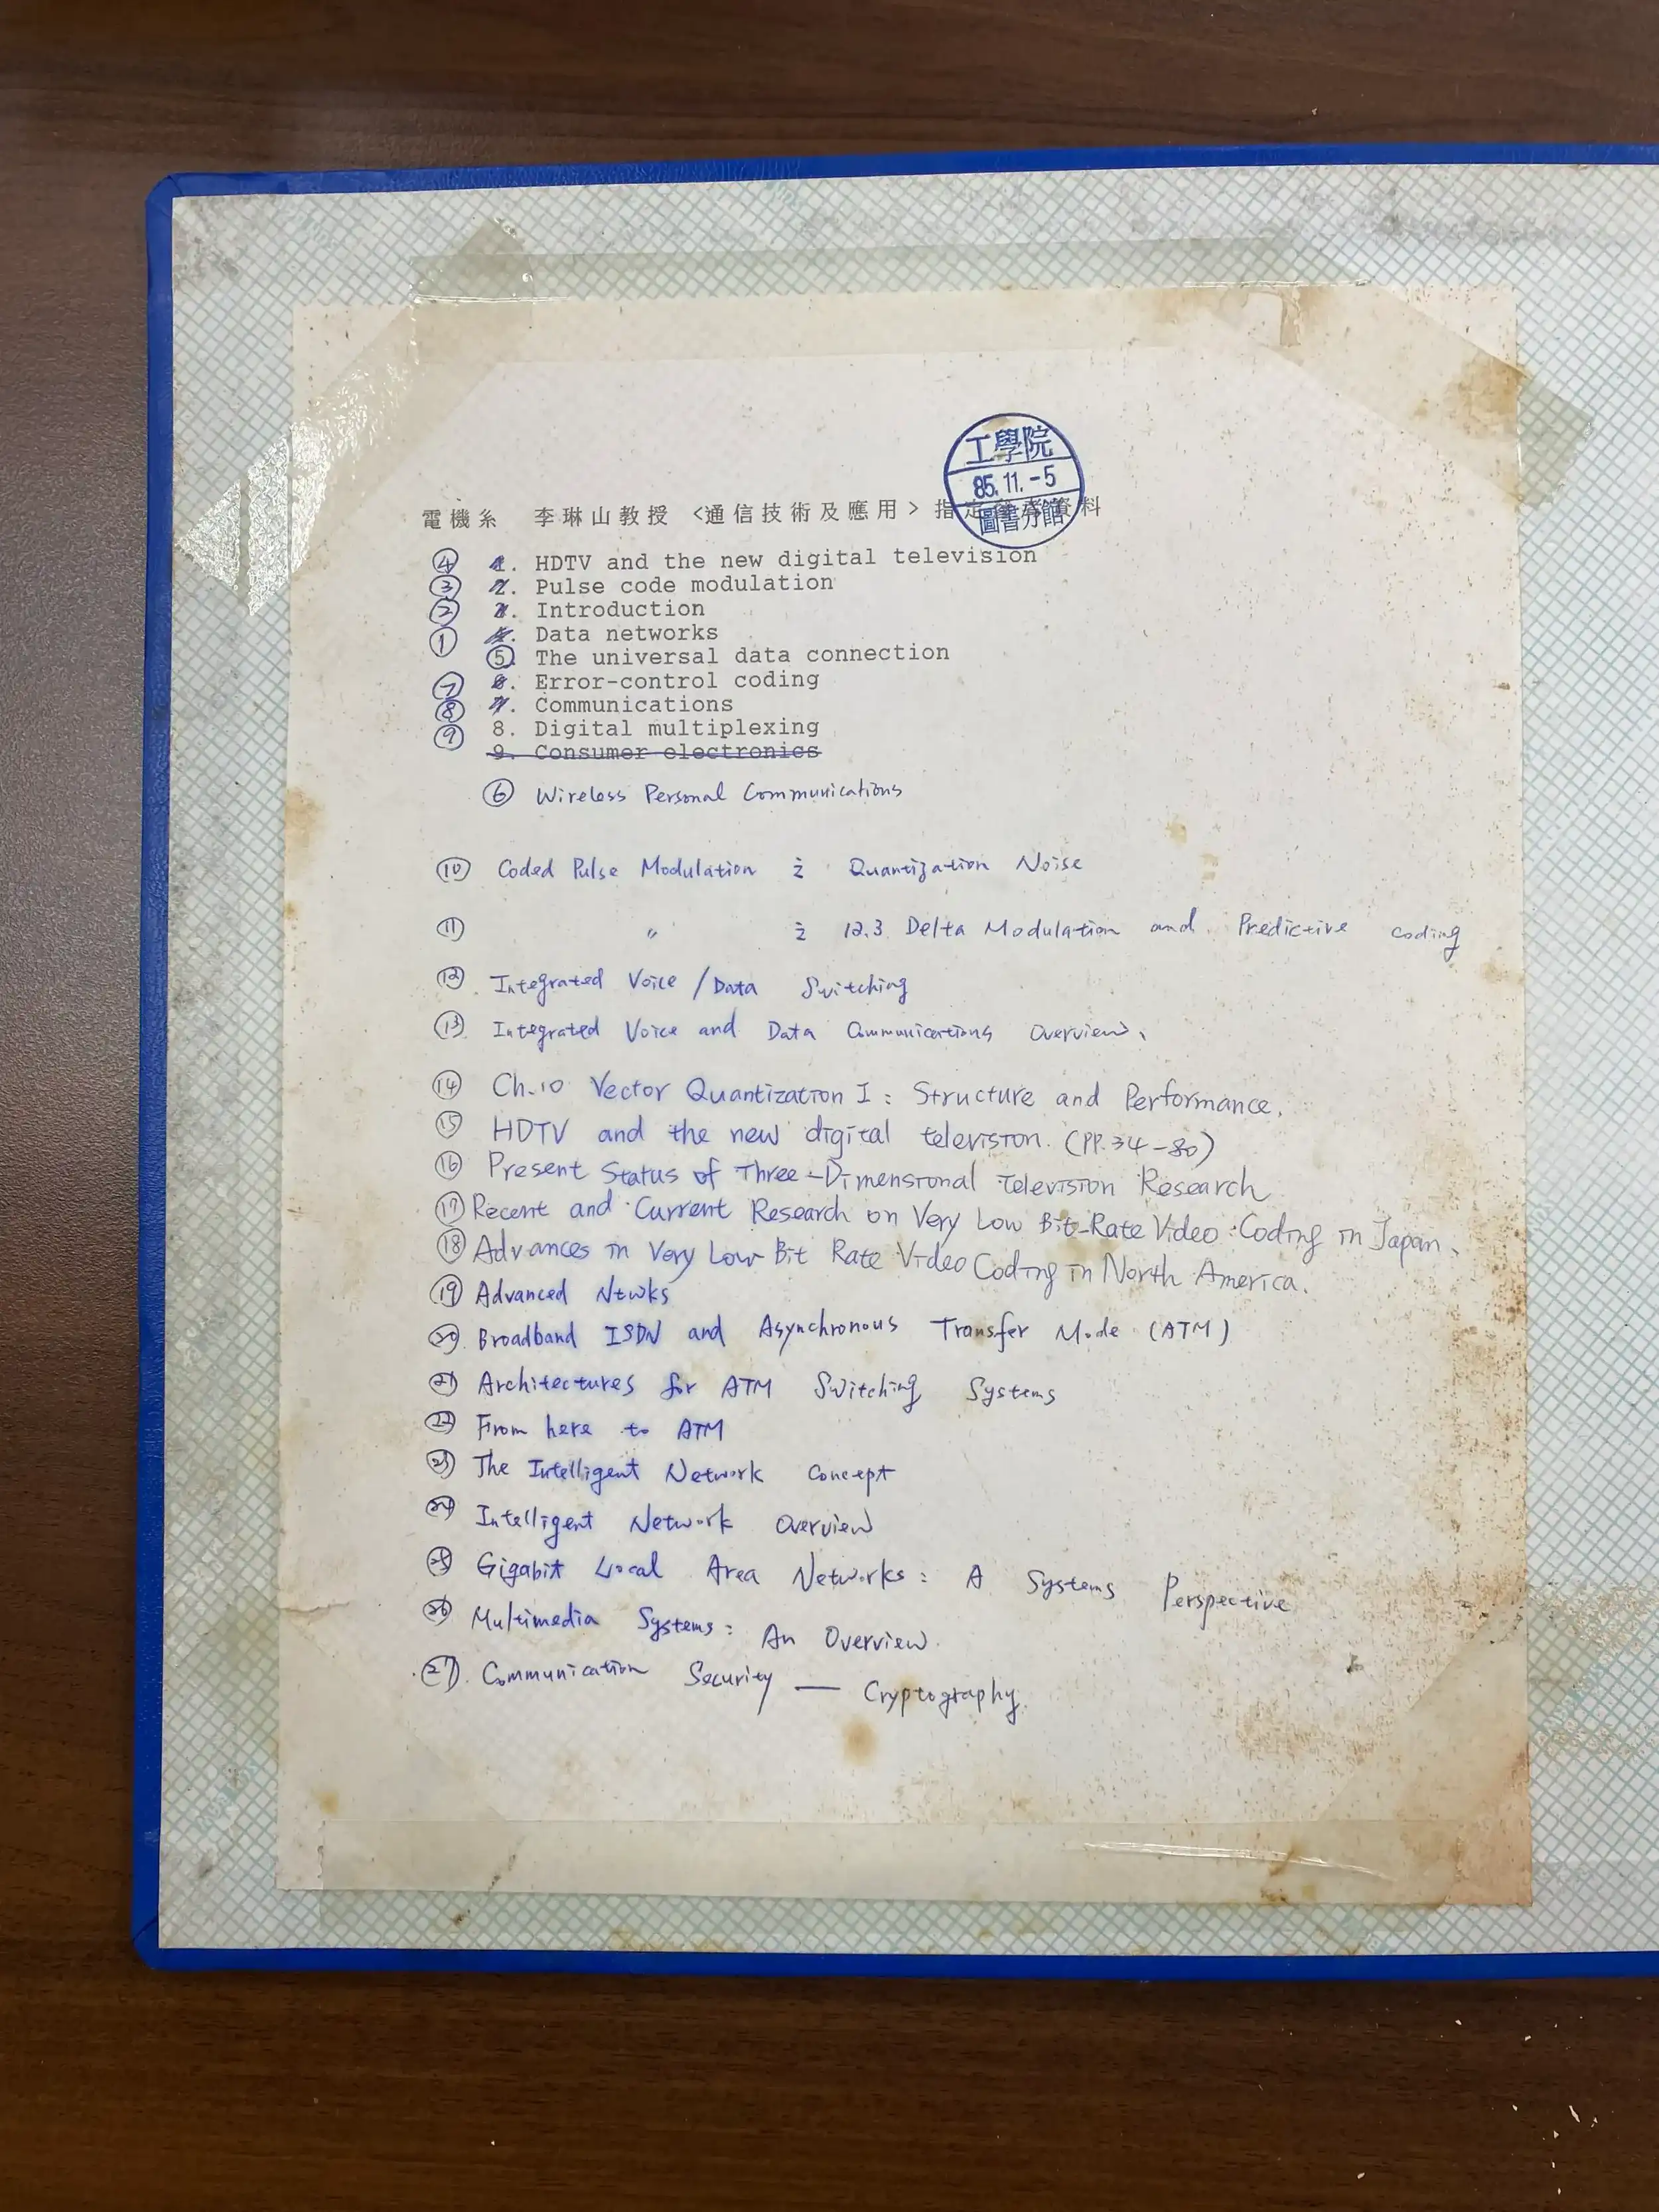 工學院
85.11.-5
圖書分館
電機系 李琳山教授 <通信技術及應用> 指定參考資料
④ 1. HDTV and the new digital television
③ 2. Pulse code modulation
② 3. Introduction
① 4. Data networks
⑤. The universal data connection
⑦ 6. Error-control coding
⑧ 7. Communications
⑨ 8. Digital multiplexing
9. Consumer electronics
⑥ Wireless Personal Communications
⑩ Coded Pulse Modulation 之 Quantization Noise
⑪ " 之 12.3 Delta Modulation and Predictive coding
⑫ Integrated Voice / Data Switching
⑬ Integrated Voice and Data Communications Overview、
⑭ Ch.10 Vector Quantization I : Structure and Performance.
⑮ HDTV and the new digital television. (PP.34-80)
⑯ Present Status of Three-Dimensional Television Research
⑰ Recent and Current Research on Very Low Bit-Rate Video Coding in Japan、
⑱ Advances in Very Low Bit Rate Video Coding in North America.
⑲ Advanced Ntwks
⑳ Broadband ISDN and Asynchronous Transfer Mode (ATM)
㉑ Architectures for ATM Switching Systems
㉒ From here to ATM
㉓ The Intelligent Network Concept
㉔ Intelligent Network Overview
㉕ Gigabit Local Area Networks: A Systems Perspective
㉖ Multimedia Systems: An Overview.
㉗. Communication Security — Cryptography